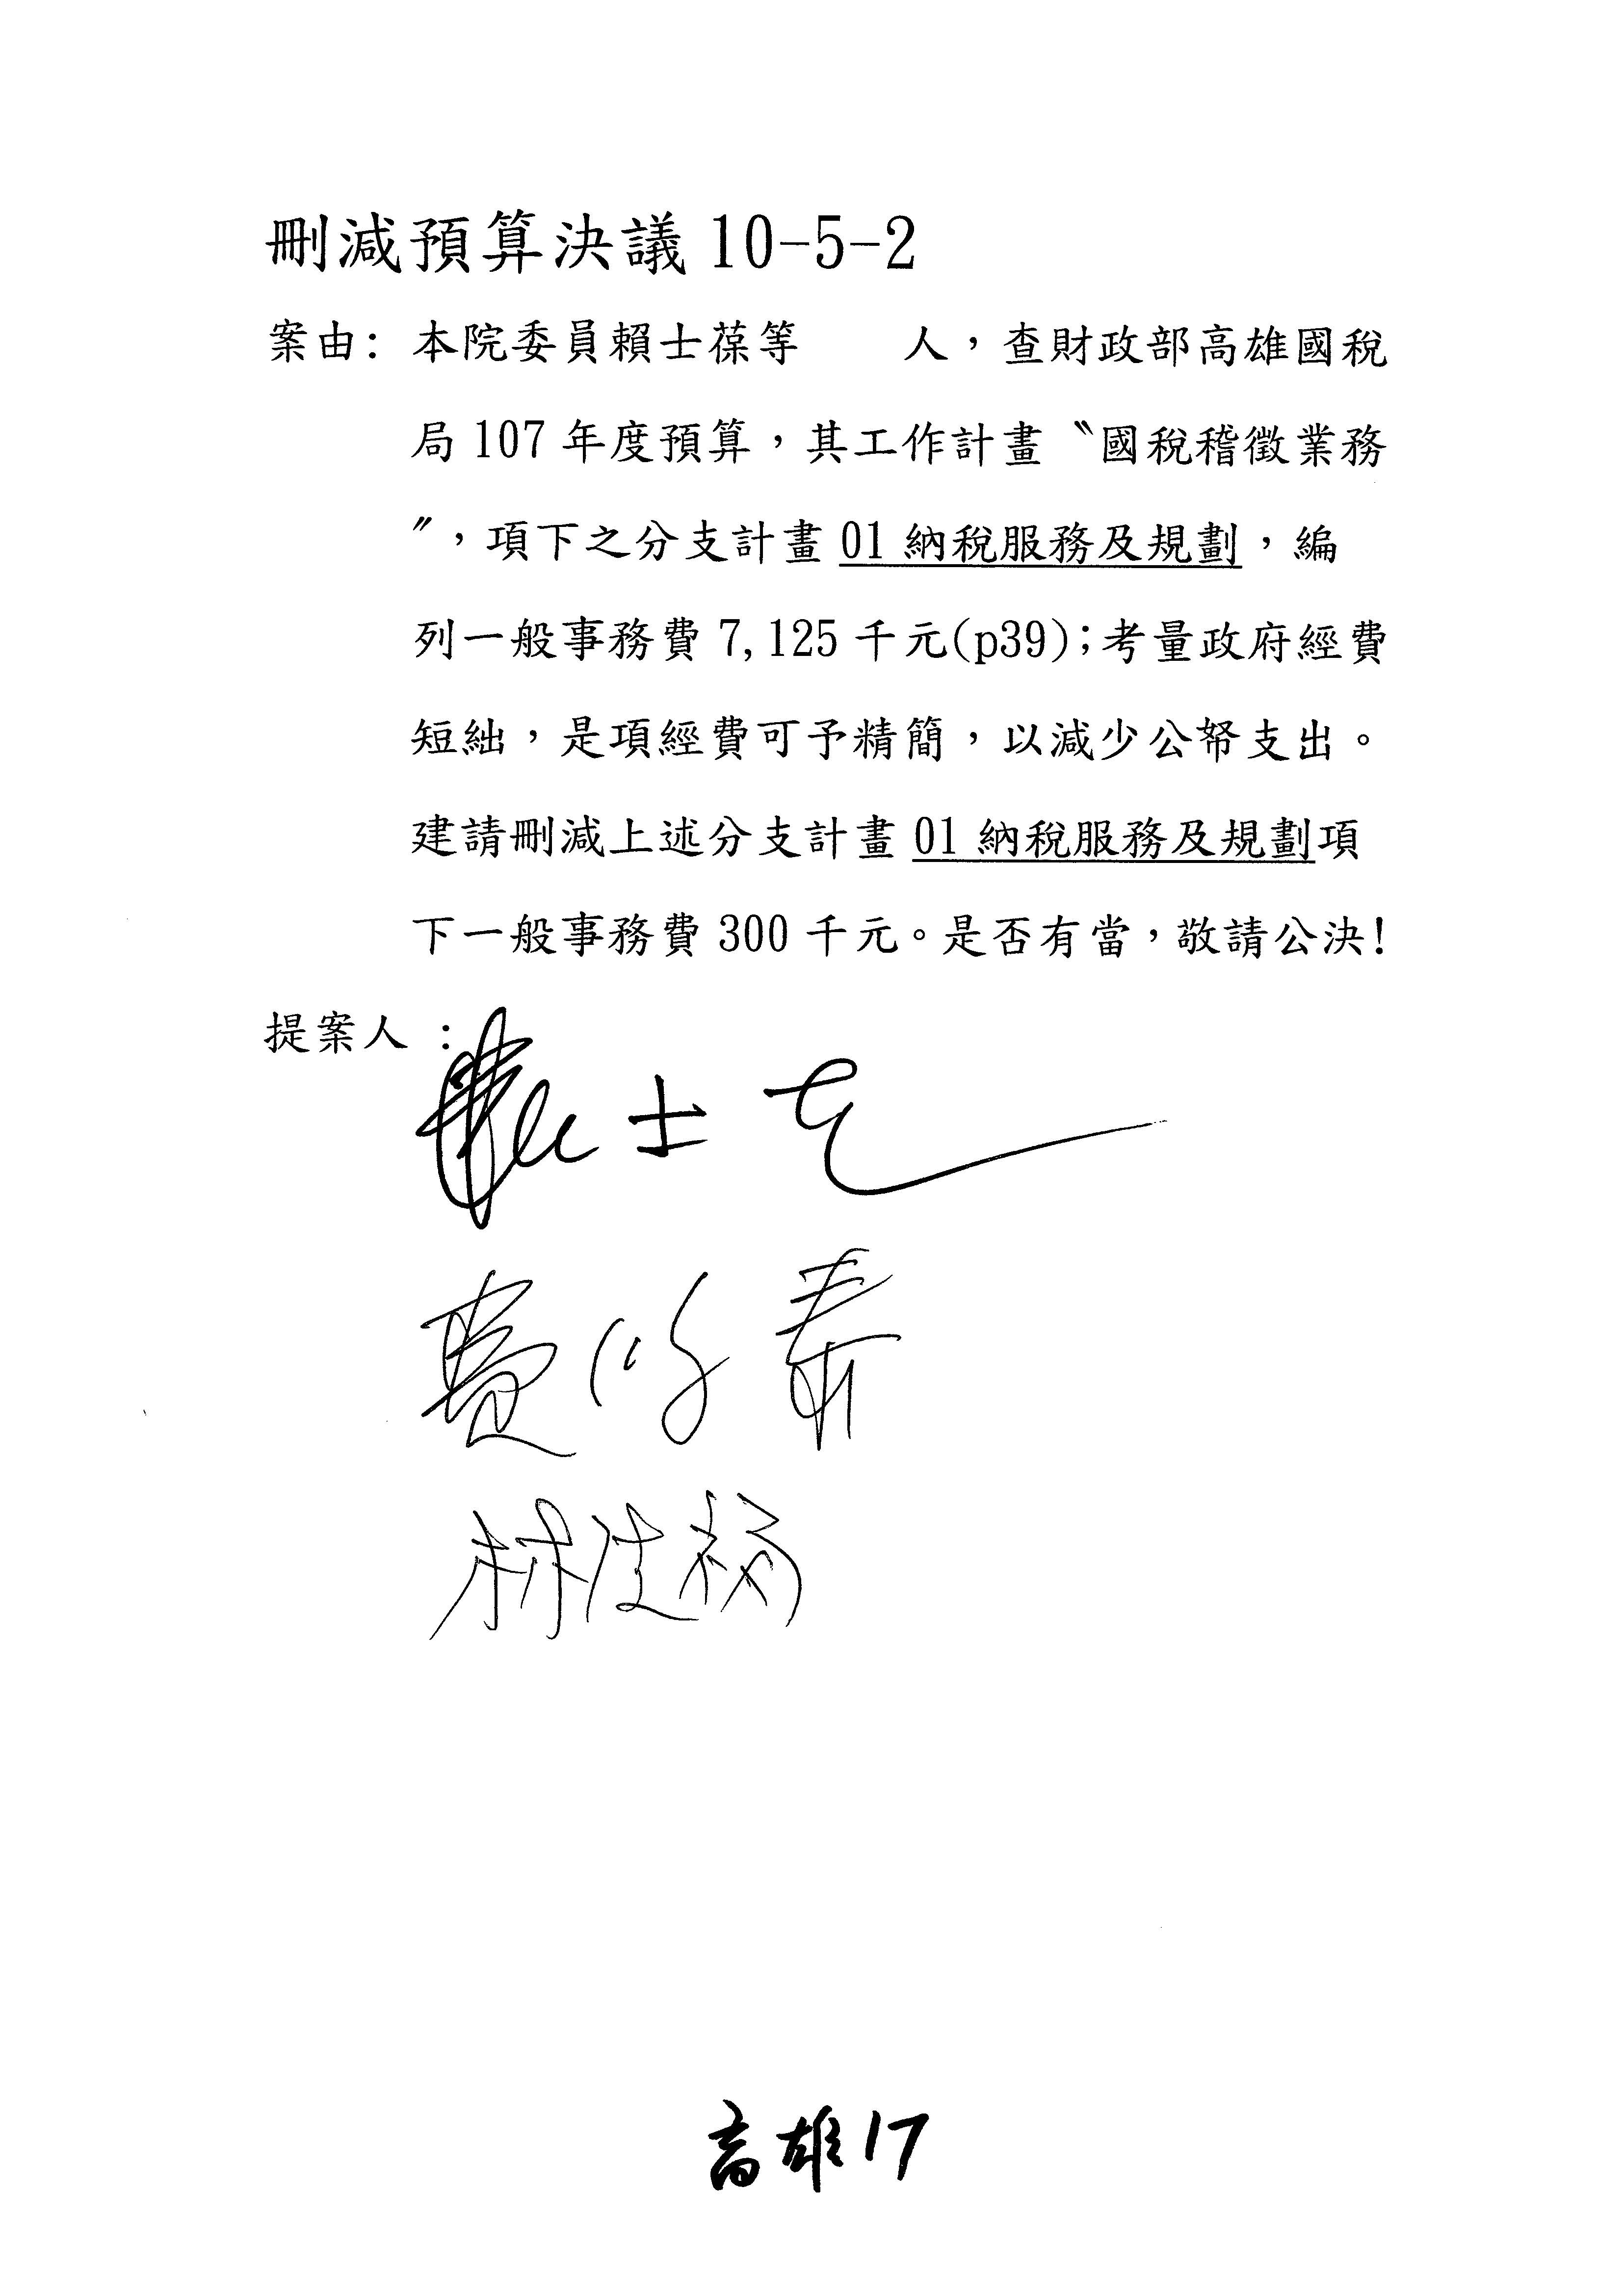 刪減預算決議 10-5-2
案由: 本院委員賴士葆等　　人，查財政部高雄國稅
局 107 年度預算，其工作計畫〝國稅稽徵業務
〞，項下之分支計畫 01 納稅服務及規劃，編
列一般事務費 7,125 千元(p39);考量政府經費
短絀，是項經費可予精簡，以減少公帑支出。
建請刪減上述分支計畫 01 納稅服務及規劃項
下一般事務費 300 千元。是否有當，敬請公決!
提案人:
高雄17